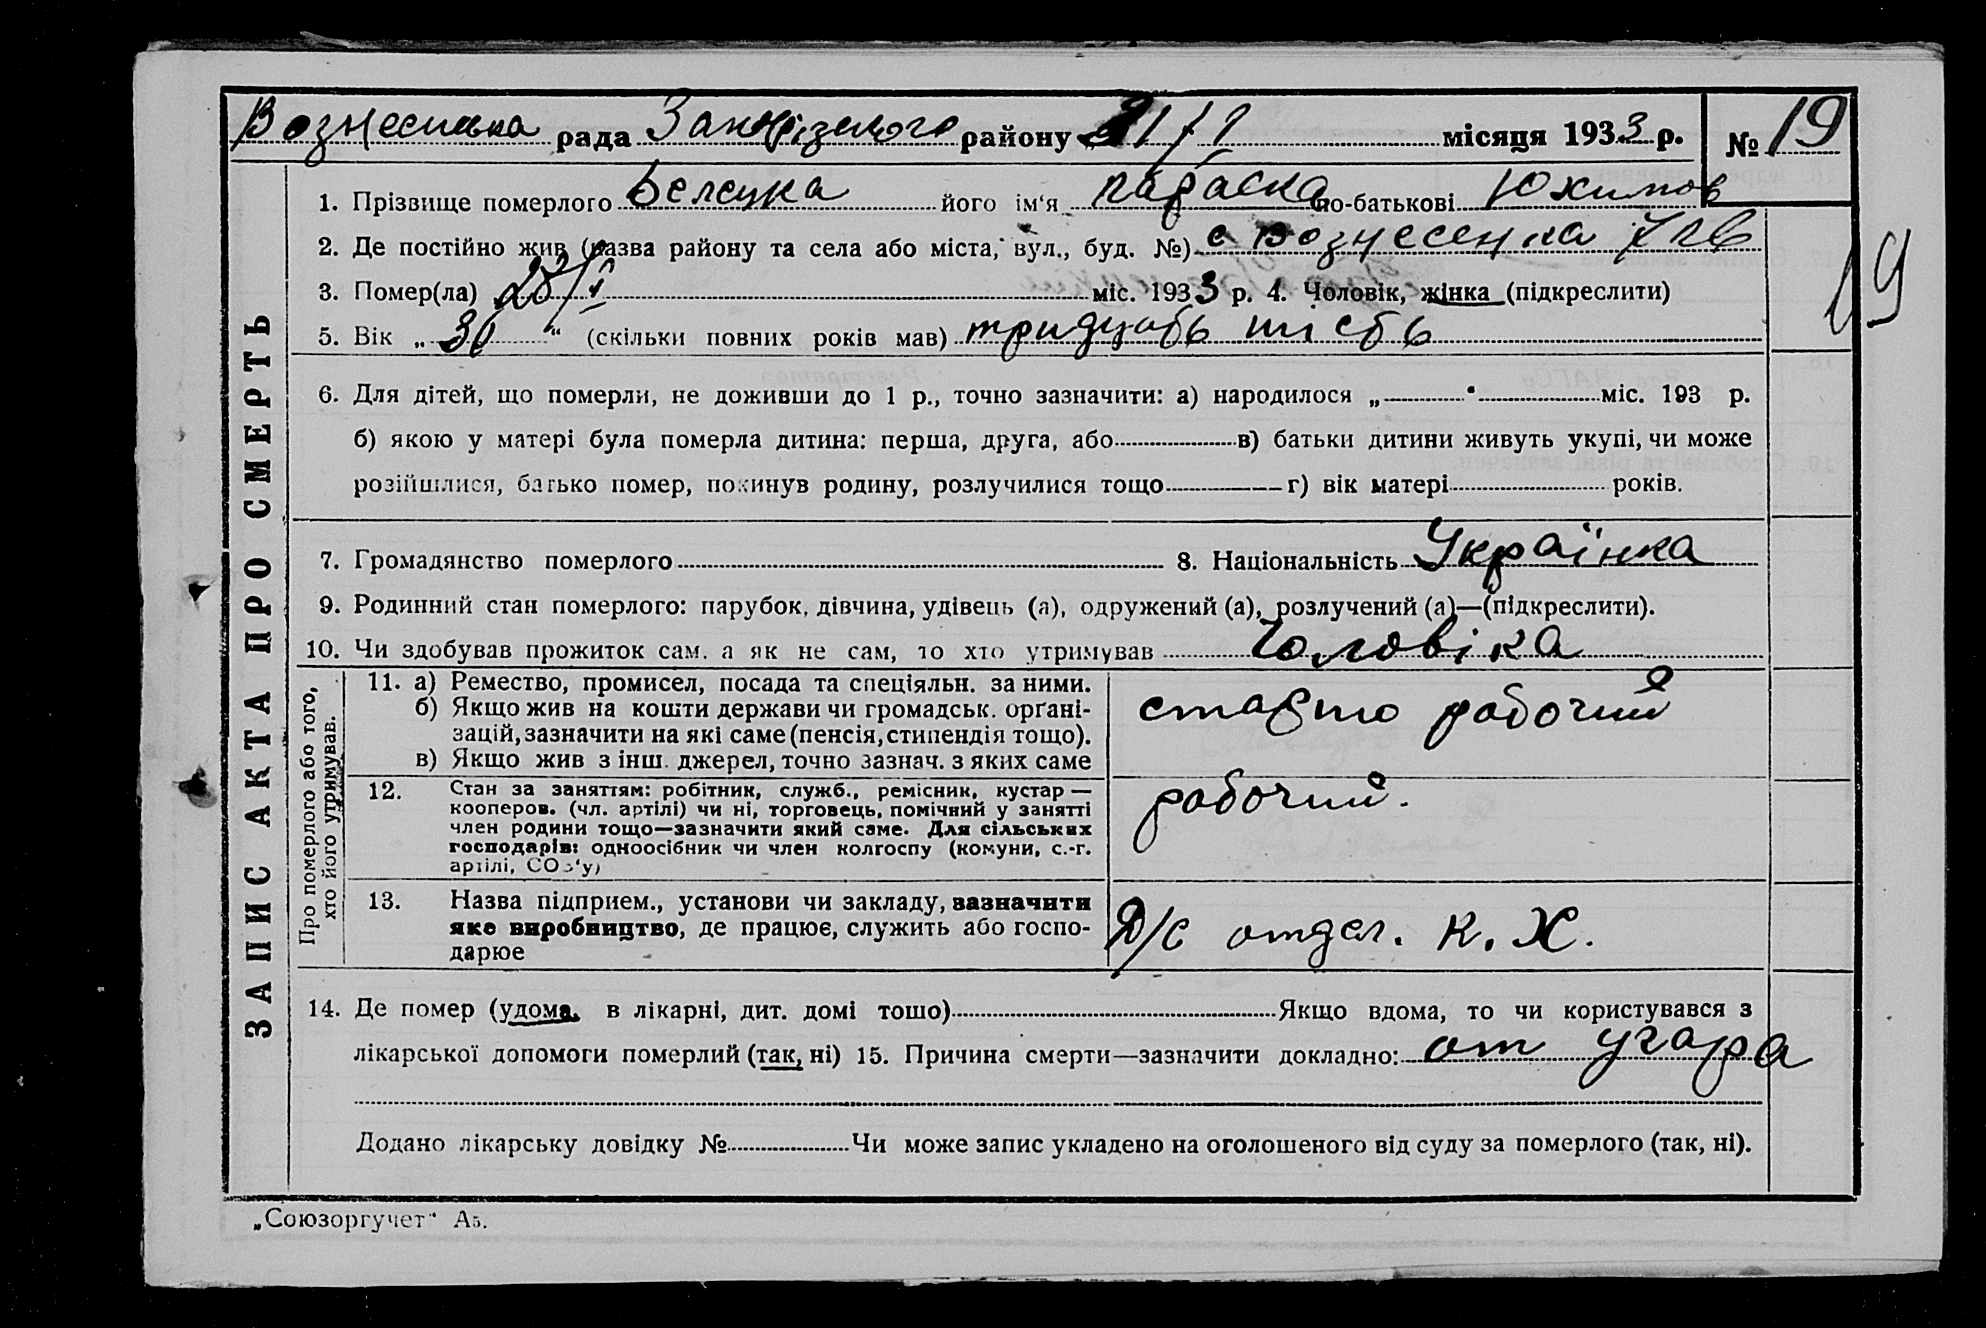 Вознесенка рада Запорізького району 21/I місяця 1933 р. № 19
1. Прізвище померлого Белецка його ім'я Параска по-батькові Юхимов
2. Де постійно жив (назва району та села або міста, вул., буд. №) с Вознесенка
19
3. Помер(ла) 1933 р. 4. Чоловік, жінка (підкреслити)
5. Вік „ 36 “ (скільки повних років мав) тридцать шість
6. Для дітей, що померли, не доживши до 1 р., точно зазначити: а) народилося „ “ міс. 193 р.
б) якою у матері була померла дитина: перша, друга, або в) батьки дитини живуть укупі, чи може
розійшлися, батько помер, покинув родину, розлучилися тощо г) вік матері років.
7. Громадянство померлого 8. Національність Українка
9. Родинний стан померлого: парубок, дівчина, удівець (а), одружений (а), розлучений (а)—(підкреслити).
10. Чи здобував прожиток сам, а як не сам, то хто утримував Чоловіка
ЗАПИС АКТА ПРО СМЕРТЬ
Про померлого або того,
хто його утримував.
11. а) Ремество, промисел, посада та спеціяльн. за ними.
б) Якщо жив на кошти держави чи громадськ. орґані-
зацій, зазначити на які саме (пенсія, стипендія тощо).
в) Якщо жив з інш. джерел, точно зазнач. з яких саме
рабочий
12. Стан за заняттям: робітник, служб., ремісник, кустар —
кооперов. (чл. артілі) чи ні, торговець, помічний у занятті
член родини тощо—зазначити який саме. Для сільських
господарів: одноосібник чи член колгоспу (комуни, с.-г.
артілі, СОЗ'у)
рабочий.
13. Назва підприєм., установи чи закладу, зазначити
яке виробництво, де працює, служить або госпо-
дарює
Д/с отдел. К. Х.
14. Де помер (удома, в лікарні, дит. домі тощо) Якщо вдома, то чи користувався з
лікарської допомоги померлий (так, ні) 15. Причина смерти—зазначити докладно: от угара
Додано лікарську довідку № Чи може запис укладено на оголошеного від суду за померлого (так, ні).
„Союзоргучет“ А5.